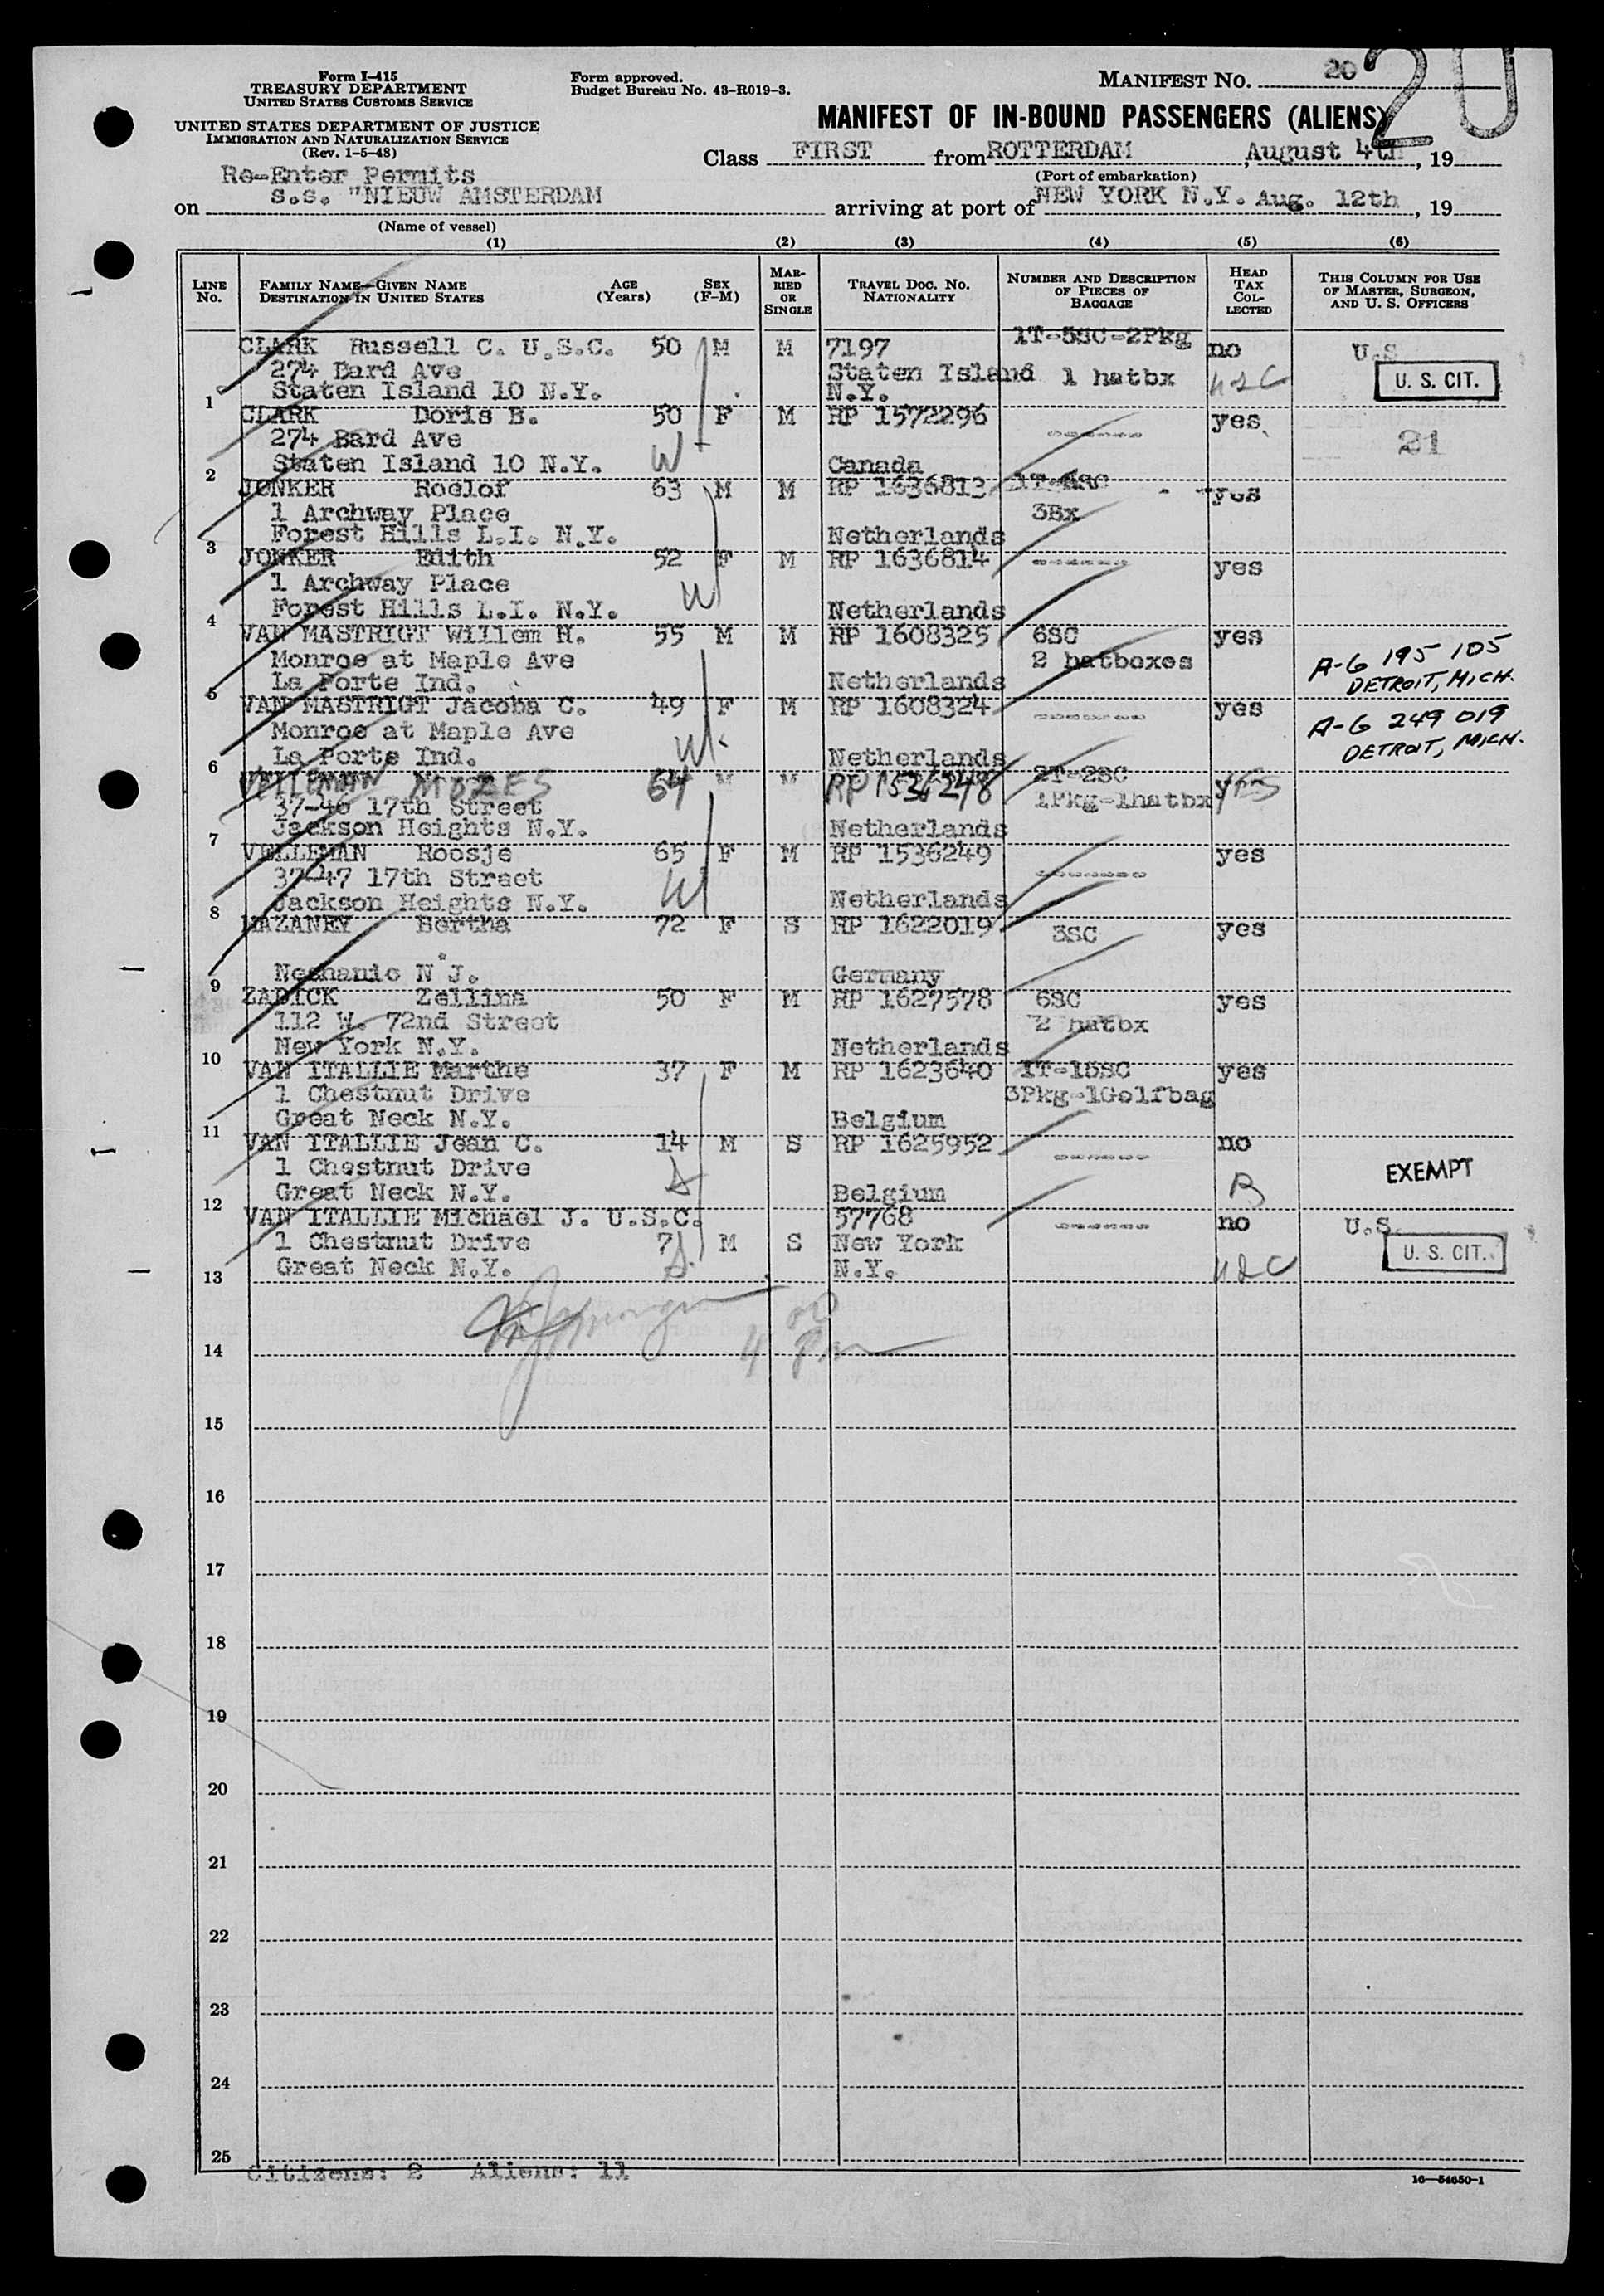 Form I-415
TREASURY DEPARTMENT
UNITED STATES CUSTOMS SERVICE
UNITED STATES DEPARTMENT OF JUSTICE
IMMIGRATION AND NATURALIZATION SERVICE
(Rev. 1-5-48)
Form approved.
Budget Bureau No. 43-R019-3.
MANIFEST NO. 20
20
MANIFEST OF IN-BOUND PASSENGERS (ALIENS)
Class FIRST from ROTTERDAM, August 4th, 19
(Port of embarkation)
Re-Enter Permits
on S.S. "NIEUW AMSTERDAM arriving at port of NEW YORK N.Y. Aug. 12th, 19
(Name of vessel)
(1) (2) (3) (4) (5) (6)
LINE No. FAMILY NAME—GIVEN NAME DESTINATION IN UNITED STATES AGE (Years) SEX (F-M) MARRIED OR SINGLE TRAVEL DOC. NO. NATIONALITY NUMBER AND DESCRIPTION OF PIECES OF BAGGAGE HEAD TAX COLLECTED THIS COLUMN FOR USE OF MASTER, SURGEON, AND U. S. OFFICERS
CLARK Russell C. U.S.C. 50 M M 7197 1T-5SC-2Pkg no U.S
274 Bard Ave Staten Island 1 hatbx U. S. CIT.
1 Staten Island 10 N.Y. N.Y. USC
CLARK Doris B. 50 F M RP 1572296 ------ yes
274 Bard Ave 21
2 Staten Island 10 N.Y. W Canada
JONKER Roelof 63 M M RP 1636813 yes
1 Archway Place 3Bx
3 Forest Hills L.I. N.Y. Netherlands
JONKER Edith 52 F M RP 1636814 ------ yes
1 Archway Place W
4 Forest Hills L.I. N.Y. Netherlands
VAN MASTRIGT Willem H. 55 M M RP 1608325 6SC yes
Monroe at Maple Ave 2 hatboxes A-6 195 105
5 La Porte Ind. Netherlands DETROIT, MICH.
VAN MASTRIGT Jacoba C. 49 F M RP 1608324 ------ yes A-6 249 019
Monroe at Maple Ave W DETROIT, MICH.
6 La Porte Ind. Netherlands
VELLEMAN MOZES 64 M M RP 1536248 2T-2SC YES
37-46 17th Street 1Pkg-1hatbx
7 Jackson Heights N.Y. Netherlands
VELLEMAN Roosje 65 F M RP 1536249 ------ yes
37-47 17th Street W
8 Jackson Heights N.Y. Netherlands
MAZANEY Bertha 72 F S RP 1622019 3SC yes
9 Neshanic N J. Germany
ZADICK Zellina 50 F M RP 1627578 6SC yes
112 W. 72nd Street 2 hatbx
10 New York N.Y. Netherlands
VAN ITALLIE Marthe 37 F M RP 1623640 1T-15SC yes
1 Chestnut Drive 3Pkg-1Golfbag
11 Great Neck N.Y. Belgium
VAN ITALLIE Jean C. 14 M S RP 1625952 ------ no
1 Chestnut Drive EXEMPT
12 Great Neck N.Y. Belgium B
VAN ITALLIE Michael J. U.S.C. 57768 ------ no U.S.
1 Chestnut Drive 7 M S New York U. S. CIT.
13 Great Neck N.Y. N.Y. USC
4 00 Pm
14
15
16
17
18
19
20
21
22
23
24
25
Citizens: 2 Aliens: 11
16—54650-1